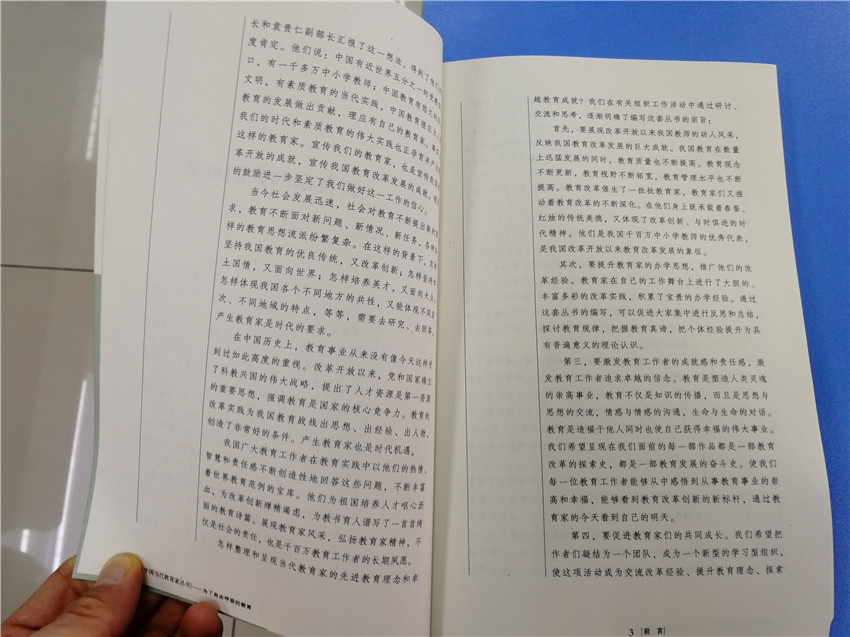 长和袁贵仁副部长汇报了这一想法，得到了他们
度肯定。他们说：中国有近世界五分之一的
口，有一千多万中小学教师；中国教育有悠久的
文明，有素质教育的当代实践，中国教育理应
教育的发展做出贡献，理应有自己的教育家。
我们的时代和素质教育的伟大实践也正孕育
这样的教育家。宣传我们的教育家，也是宣传
革开放的成就，宣传我国教育改革发展的成就。
的鼓励进一步坚定了我们做好这一工作的信心。
当今社会发展迅速，社会对教育不断提出新的
求，教育不断面对新问题、新情况、新任务，各种
样的教育思想流派纷繁复杂。在这样的背景下，怎样
坚持我国教育的优良传统，又改革创新；怎样坚持
土国情，又面向世界；怎样培养英才，又面向大众；
怎样体现我国各个不同地方的共性，又能体现不同层
次、不同地域的特点，等等，需要去研究、去回答。
产生教育家是时代的要求。
在中国历史上，教育事业从来没有像今天这样受
到过如此高度的重视。改革开放以来，党和国家确立
了科教兴国的伟大战略，提出了人才资源是第一资源
的重要思想，强调教育是国家的核心竞争力。教育的
改革实践为我国教育战线出思想、出经验、出人物，
创造了非常好的条件。产生教育家也是时代机遇。
我国广大教育工作者在教育实践中以他们的热情、
智慧和责任感不断创造性地回答这些问题，不断丰富
着世界教育范例的宝库。他们为祖国培养人才呕心沥
血，为改革创新殚精竭虑，为教书育人谱写了一首首绚
丽的教育诗篇。展现教育家风采，弘扬教育家精神，不
仅是社会的责任，也是千百万教育工作者的长期夙愿。
怎样整理和呈现当代教育家的先进教育理念和卓
中国当代教育家丛书)——为了自由呼吸的教育
越教育成就？我们在有关组织工作活动中通过研讨、
交流和思考，逐渐明确了编写这套丛书的宗旨：
首先，要展现改革开放以来我国教师的动人风采，
反映我国教育改革发展的巨大成就。我国教育在数量
上迅猛发展的同时，教育质量也不断提高。教育观念
不断更新，教育视野不断拓宽，教育管理水平也不断
提高。教育改革催生了一批批教育家，教育家们又推
动着教育改革的不断深化。在他们身上既承载着春蚕、
红烛的传统美德，又体现了改革创新、与时俱进的时
代精神。他们是我国千百万中小学教师的优秀代表，
是我国改革开放以来教育改革发展的象征。
其次，要提升教育家的办学思想，推广他们的改
革经验。教育家在自己的工作舞台上进行了大胆的、
丰富多彩的改革实践，积累了宝贵的办学经验。通过
这套丛书的编写，可以促进大家集中进行反思和总结，
探讨教育规律，把握教育真谛，把个体经验提升为具
有普遍意义的理论认识。
第三，要激发教育工作者的成就感和责任感，激
发教育工作者追求卓越的信念。教育是塑造人类灵魂
的崇高事业，教育不仅是知识的传播，而且是思想与
思想的交流，情感与情感的沟通，生命与生命的对话。
教育是造福于他人同时也使自己获得幸福的伟大事业。
我们希望呈现在我们面前的每一部作品都是一部教育
改革的探索史，都是一部教育发展的奋斗史。使我们
每一位教育工作者能够从中感悟到从事教育事业的崇
高和幸福，能够看到教育改革创新的新标杆，通过教
育家的今天看到自己的明天。
第四，要促进教育家们的共同成长。我们希望把
作者们凝结为一个团队，成为一个新型的学习型组织，
使这项活动成为交流改革经验、提升教育理念、探索
3 前言